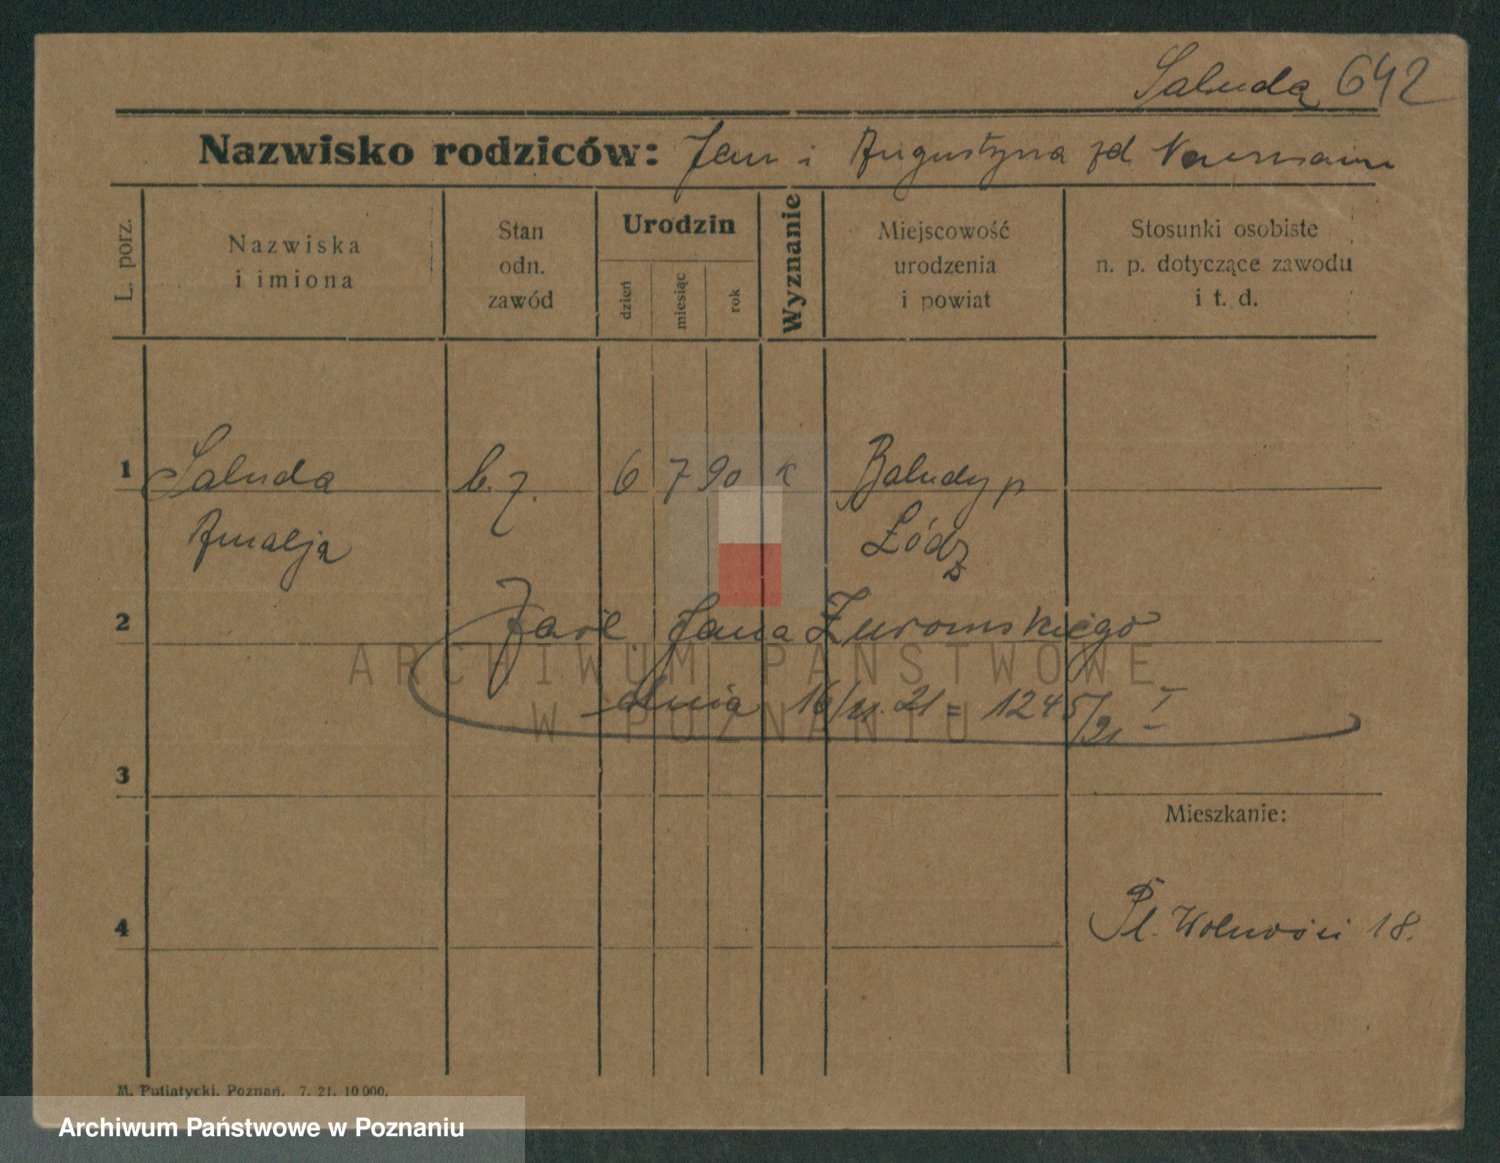 Saluda 642
Nazwisko rodziców: Jan i Augustyna zd Naumann
L. porz.
Nazwiska
i imiona
Stan
odn.
zawód
Urodzin
dzień
miesiąc
rok
Wyznanie
Miejscowość
urodzenia
i powiat
Stosunki osobiste
n. p. dotyczące zawodu
i t. d.
1 Saluda b. z. 6 7 90 k Baludy p
Amalja Łódz
2 Jana Żuromskiego
dnia 16/11. 21 = 1245/21 I
ARCHIWUM PAŃSTWOWE
W POZNANIU
3
Mieszkanie:
4 Pl. Wolności 18.
M. Putiatycki, Poznań, 7. 21. 10 000.
Archiwum Państwowe w Poznaniu